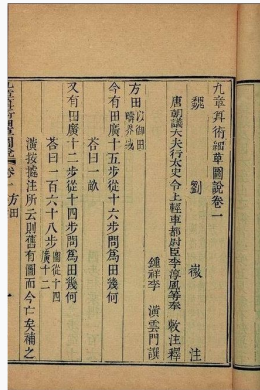 九章算術細草圖說卷一
魏 劉 徽 注
唐朝議大夫行太史令上輕車都尉臣李淳風等奉 敕注釋
鍾祥李 潢雲門譔
方田 以御田疇界域
今有田廣十五步從十六步問爲田幾何
荅曰一畝
又有田廣十二步從十四步問爲田幾何
荅曰一百六十八步 圖從十四廣十二
潢按據注所云則舊有圖而今亡矣補之
九章算術細草圖說 卷一 方田
一